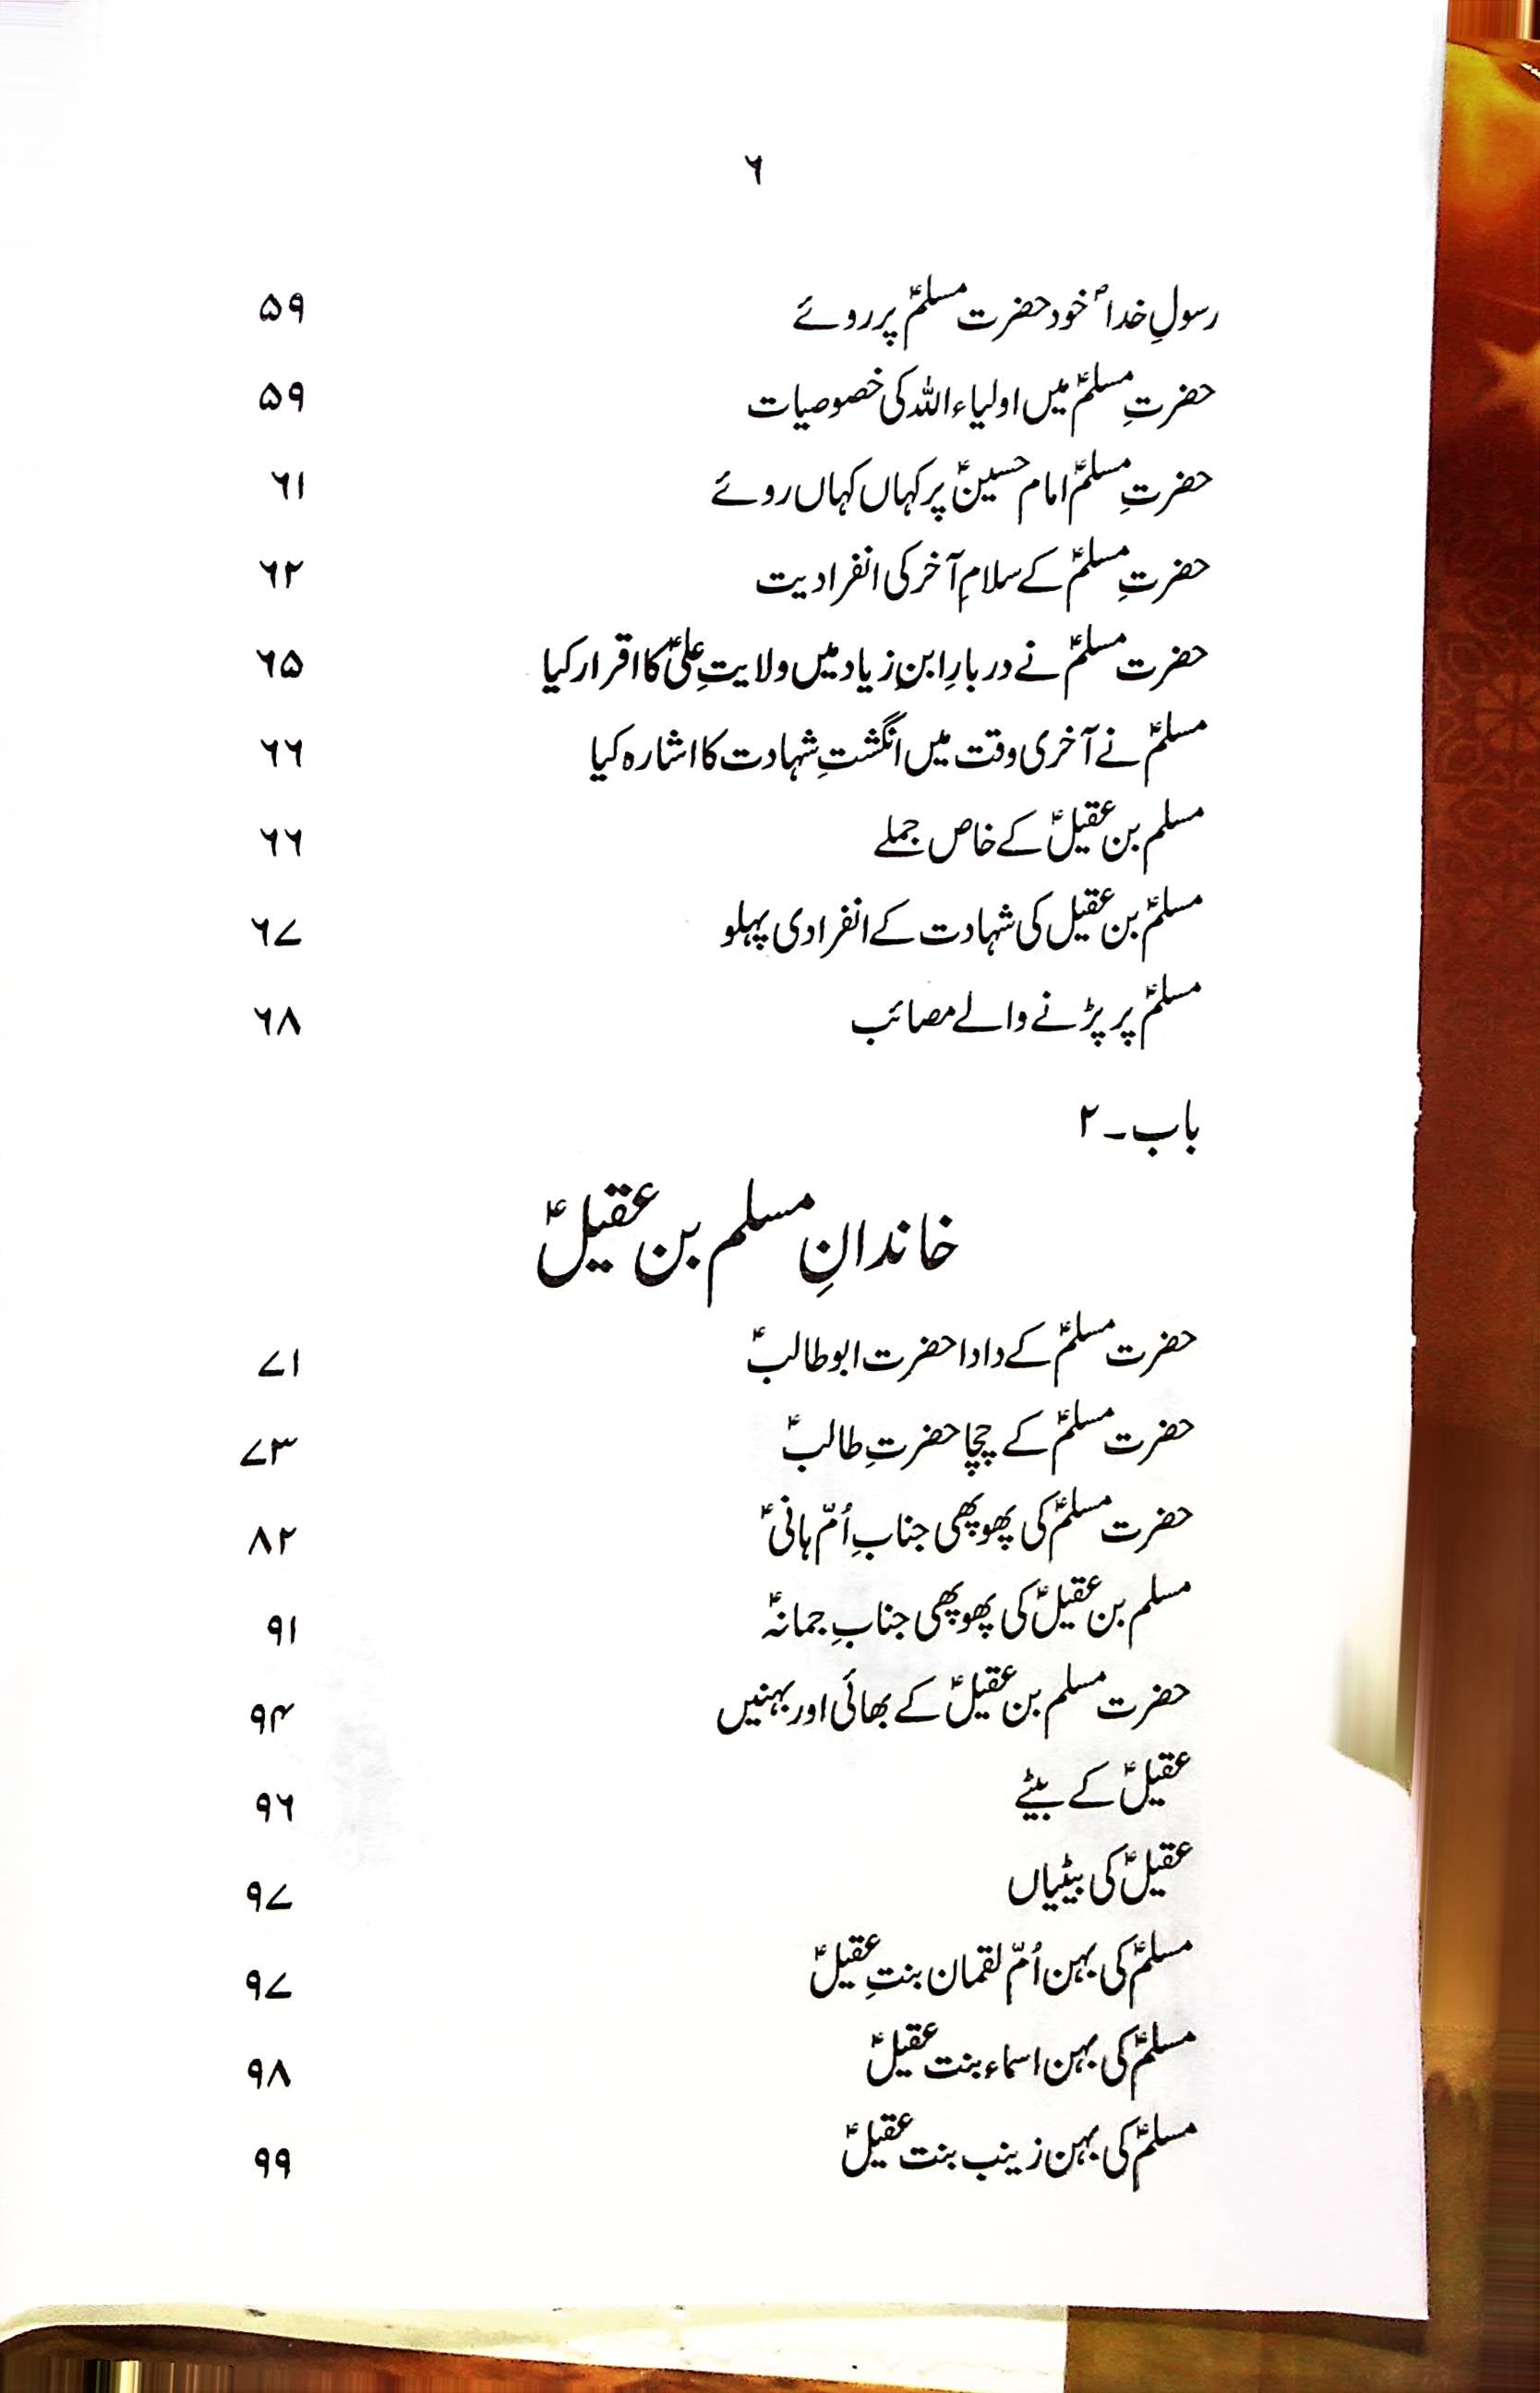 ۶
رسولِ خداؐ خود حضرت مسلمؑ پر روئے ۵۹
حضرتِ مسلمؑ میں اولیاء اللہ کی خصوصیات ۵۹
حضرتِ مسلمؑ امام حسینؑ پر کہاں کہاں روئے ۶۱
حضرتِ مسلمؑ کے سلامِ آخر کی انفرادیت ۶۲
حضرت مسلمؑ نے دربارِ ابنِ زیاد میں ولایتِ علیؑ کا اقرار کیا ۶۵
مسلمؑ نے آخری وقت میں انگشتِ شہادت کا اشارہ کیا ۶۶
مسلم بن عقیلؑ کے خاص جملے ۶۶
مسلمؑ بن عقیل کی شہادت کے انفرادی پہلو ۶۷
مسلمؑ پر پڑنے والے مصائب ۶۸
باب۔۲
خاندانِ مسلم بن عقیلؑ
حضرت مسلمؑ کے دادا حضرت ابوطالبؑ ۷۱
حضرت مسلمؑ کے چچا حضرتِ طالبؑ ۷۳
حضرت مسلمؑ کی پھوپھی جنابِ اُمّ ہانیؑ ۸۲
مسلم بن عقیلؑ کی پھوپھی جنابِ جمانہؑ ۹۱
حضرت مسلم بن عقیلؑ کے بھائی اور بہنیں ۹۴
عقیلؑ کے بیٹے ۹۶
عقیلؑ کی بیٹیاں ۹۷
مسلمؑ کی بہن اُمّ لقمان بنتِ عقیلؑ ۹۷
مسلمؑ کی بہن اسماء بنت عقیلؑ ۹۸
مسلمؑ کی بہن زینب بنت عقیلؑ ۹۹